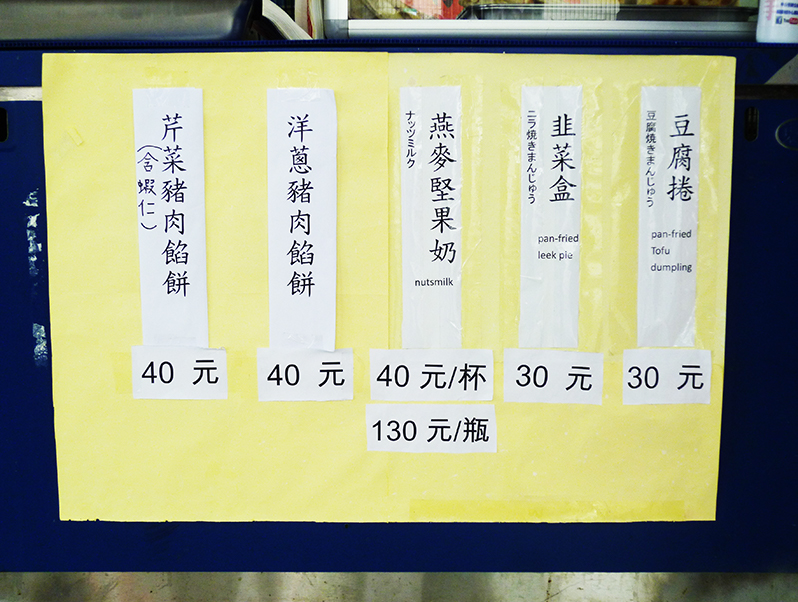 豆腐捲
豆腐焼きまんじゅう
pan-fried
Tofu
dumpling
30 元
韭菜盒
ニラ焼きまんじゅう
pan-fried
leek pie
30 元
燕麥堅果奶
ナッツミルク
nutsmilk
40 元/杯
130 元/瓶
洋蔥豬肉餡餅
40 元
芹菜豬肉餡餅
(含蝦仁)
40 元